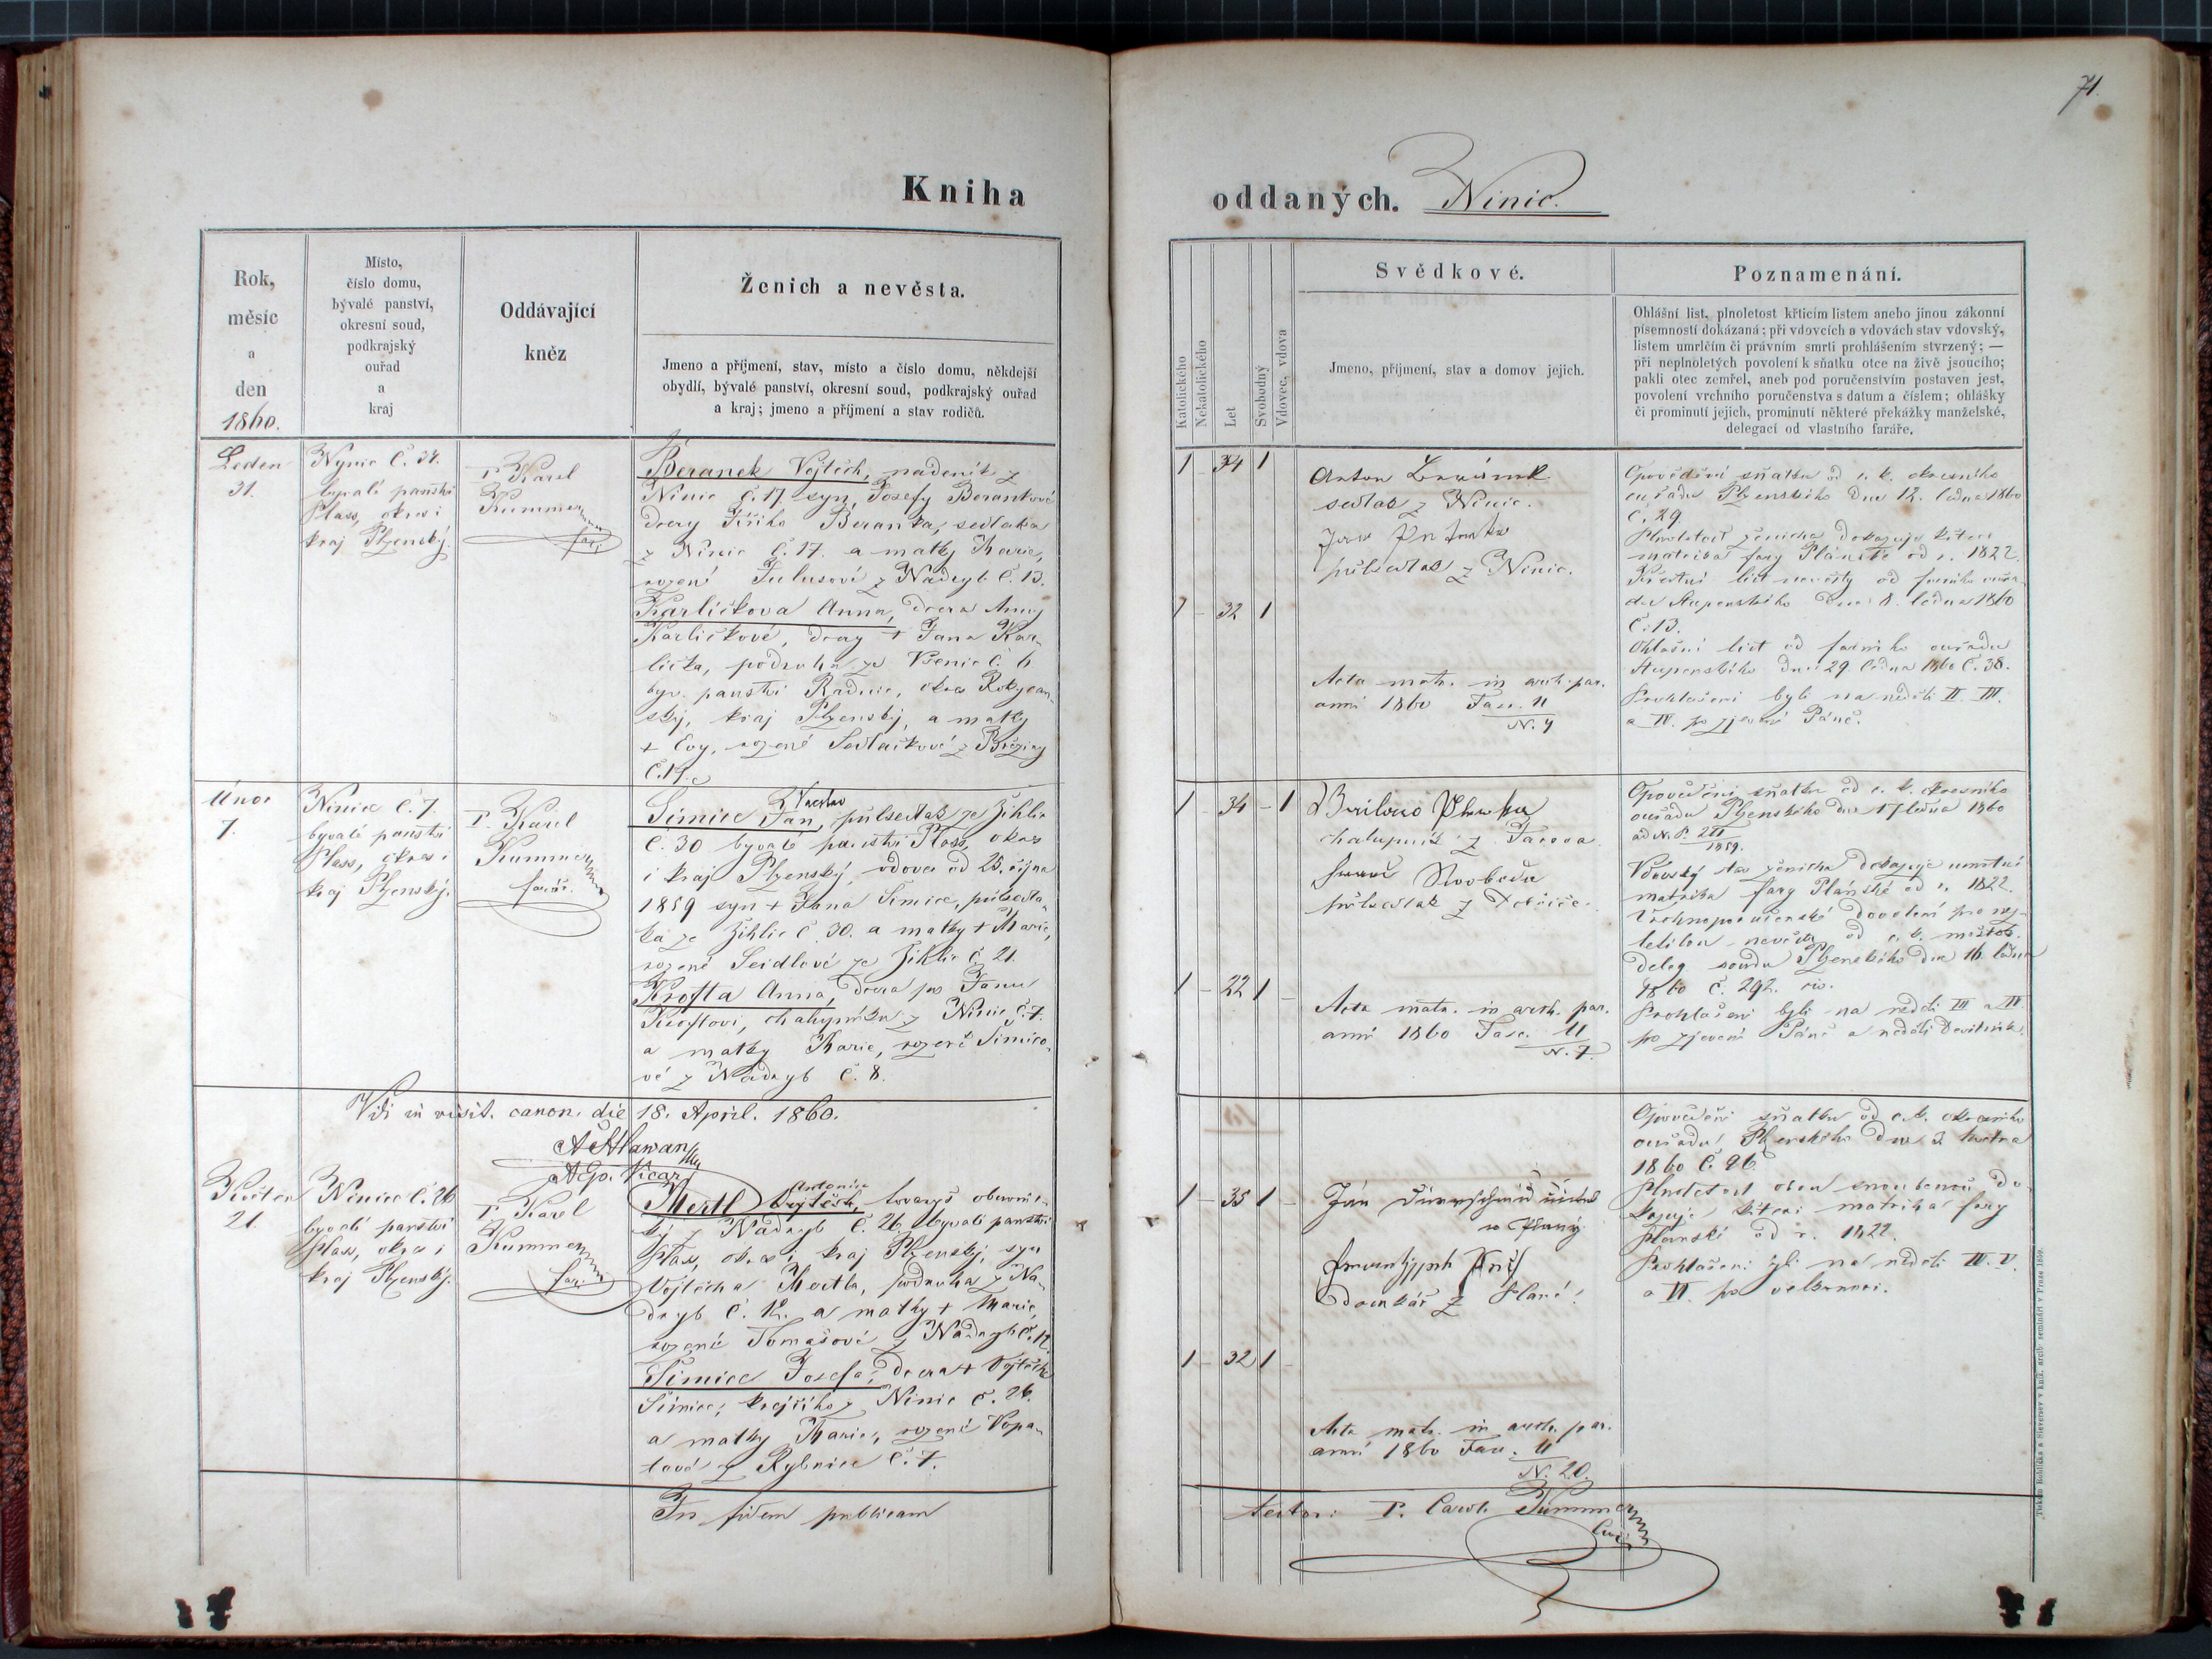 71.
Kniha
oddaných. Ninic.
Rok,
měsíc
a
den
1860.
Místo,
číslo domu,
bývalé panství,
okresní soud,
podkrajský
ouřad
a
kraj
Oddávající
kněz
Ženich a nevěsta.
Jmeno a příjmení, stav, místo a číslo domu, někdejší
obydlí, bývalé panství, okresní soud, podkrajský ouřad
a kraj; jmeno a příjmení a stav rodičů.
Katolického
Nekatolického
Let
Svobodný
Vdovec, vdova
Svědkové.
Jmeno, příjmení, stav a domov jejich.
Poznamenání.
Ohlášní list, plnoletost křticím listem anebo jinou zákonní
písemností dokázaná; při vdovcích a vdovách stav vdovský,
listem umrlčím či právním smrti prohlášením stvrzený; —
při neplnoletých povolení k sňatku otce na živě jsoucího;
pakli otec zemřel, aneb pod poručenstvím postaven jest,
povolení vrchního poručenstva s datum a číslem; ohlášky
či prominutí jejich, prominutí některé překážky manželské,
delegací od vlastního faráře.
Leden
31.
Nynic č. 34.
byvalé panství
Plass, okres i
kraj Plzenský.
P. Karel
Kummer
far.
Beranek Vojtěch, nadeník z
Ninic č. 17. syn Josefy Berankové
dcery Jiřího Beranka, sedlaka
z Ninic č. 17. a matky Marie,
rozené Tulusové z Nadryb č. 13.
Karličkova Anna, dcera Anny
Karličkové, dcery + Jana Kar-
lička, podruha ze Všenic č. 6
byv. panství Radnic, okres Rokycan-
ský, kraj Plzenský, a matky
+ Evy, rozené Sedlačkové z Březiny
1 - 34 1
1 - 32 1
Anton
sedlak z Ninic.
Jan
půlsedlak z Ninic.
Acta matr. in arch. par.
anni 1860 Fasc. 11
N. 4
Opovědění sňatku od c. k. okresního
ouřadu Plzenského dne 12. ledna 1860
č. 29
Plnoletost ženicha dokazuje křticí
matrika fary Plánské od r. 1822.
Křestní list nevěsty od farního ouřa-
du Stupenského dne 8. ledna 1860
č. 13.
Ohlašní list od farního ouřadu
Stupenského dne 29. ledna 1860 č. 38.
Prohlašeni byli na neděli II. III.
a IV. po zjevení Páně.
Únor
7.
Ninice č. 7
byvalé panství
Plass, okres i
kraj Plzenský.
P. Karel
Kummer
farář.
Václav
Šimice Jan, půlsedlak ze Žihlic
č. 30 byvalé panství Plass, okres
i kraj Plzenský, vdovec od 25. října
1859 syn + Jana Šimice, půlsedla-
ka ze Žihlic č. 30. a matky + Marie,
rozené Seidlové ze Žihlic č. 21.
Krofta Anna, dcera po Janu
Kroftovi, chalupníku z Ninic č. 7.
a matky Marie, rozené Šimico-
vé z Nadryb č. 8.
1 - 34 - 1
1 - 22 1 -
chalupník z
Svoboda
půlsedlak z
Acta matr. in arch. par.
anni 1860 Fasc. 11
N. 7.
Opovědění sňatku od c. k. okresního
ouřadu Plzenského dne 17 ledna 1860
1859.
Vdovský stav ženicha dokazuje umrtní
matrika fary Plánské od r. 1822.
Vrchnoporučenské dovolení pro nez-
letilou nevěstu od c. k. městsk.
deleg. soudu Plzenského dne 16. ledna
1860 č. 292. civ.
Prohlašeni byli na neděli III a IV
po zjevení Páně a neděli Devítník.
Vidi in visit. canon. die 18. April. 1860.
Vicar
Květen
21.
Ninice č. 26
byvalé panství
Plass, okres i
kraj Plzenský.
P. Karel
Kummer
far.
Antonín
Mertl Vojtěch, tovaryš obuvnic-
ký z Nadryb č. 26 byvalé panství
Plass, okres i kraj Plzenský, syn
Vojtěcha Mertla, podruha z Na-
dryb č. 12. a matky + Marie,
rozené Tomašové z Nadryb č. 12.
Šimice Josefa, dcera + Vojtěcha
Šimice, krejčího z Ninic č. 26.
a matky Marie, rozené Vopa-
tové z Rybnice č. 7.
1 - 35 1 -
1 - 32 1 -
Ján
domkář z Plané.
Acta matr. in arch. par.
anni 1860 Fasc. 11
N. 20.
Opovědění sňatku od c. k. okresního
ouřadu Plzenského dne 2 května
1860 č. 96.
Plnoletost obou snoubenců do-
kazuje křticí matrika fary
Plánské od r. 1822.
Prohlašeni byli na neděli IV. V.
a VI. po velkonoci.
In fidem publicam
testor: P. Carol. Kummer
Tiskem Rohlíčka a Sieversov v kníž. arcib. semináři v Praze 1859.